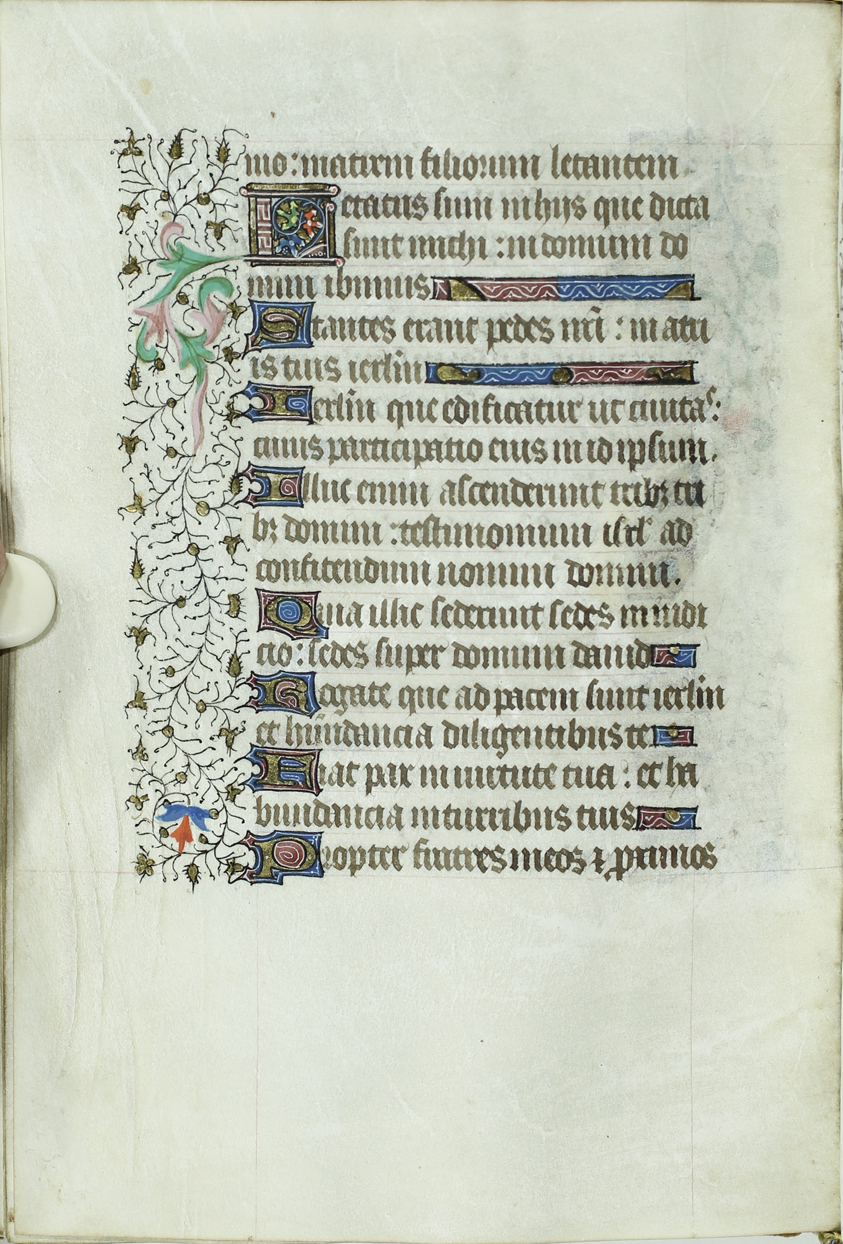 mo: matrem filiorum letantem.
Letatus sum in hijs que dicta
sunt michi: in domum do
mini ibimus
Stantes erant pedes nr̃i: in atri
is tuis ierl̃m
Ierl̃m que edificatur ut ciuitas:
cuius participatio eius in id ipsum.
Illuc enim ascenderunt tribꝫ tri
bꝫ domini: testimonium isrl̃ ad
confitendum nomini domini.
Quia illic sederunt sedes in iudi
cio: sedes super domum dauid
Rogate que ad pacem sunt ierl̃m
et hũndancia diligentibus te
Fiat pax in uirtute tua: et ha
bundancia in turribus tuis
Propter fratres meos ⁊ ꝓximos